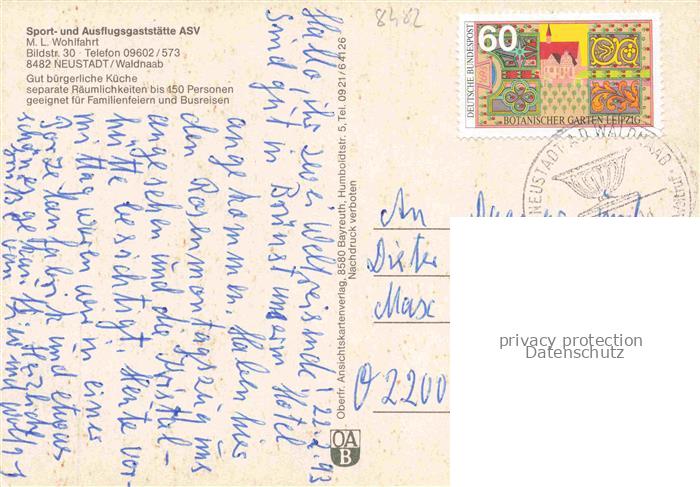 8482
Sport- und Ausflugsgaststätte ASV
M. L. Wohlfahrt
Bildstr. 30 · Telefon 09602/573
8482 NEUSTADT/Waldnaab
Gut bürgerliche Küche
separate Räumlichkeiten bis 150 Personen
geeignet für Familienfeiern und Busreisen
22.2.93
Hallo, ihr zwei Weltreisende!
Sind gut in unserm Hotel
angekommen. Haben hier
den Rosenmontagszug uns
angesehen und die Kristall-
hütte besichtigt. Heute vor-
mittag waren wir in einer
Porzellanfabrik und etwas
schönes gekauft. Herzliche
Grüße von
Oberfr. Ansichtskartenverlag, 8580 Bayreuth, Humboldtstr. 5, Tel. 0921/64126
Nachdruck verboten
OA
B
DEUTSCHE BUNDESPOST
60
BOTANISCHER GARTEN LEIPZIG
NEUSTADT A.D. WALDNAAB
An
Dieter
Max
O 2200
privacy protection
Datenschutz